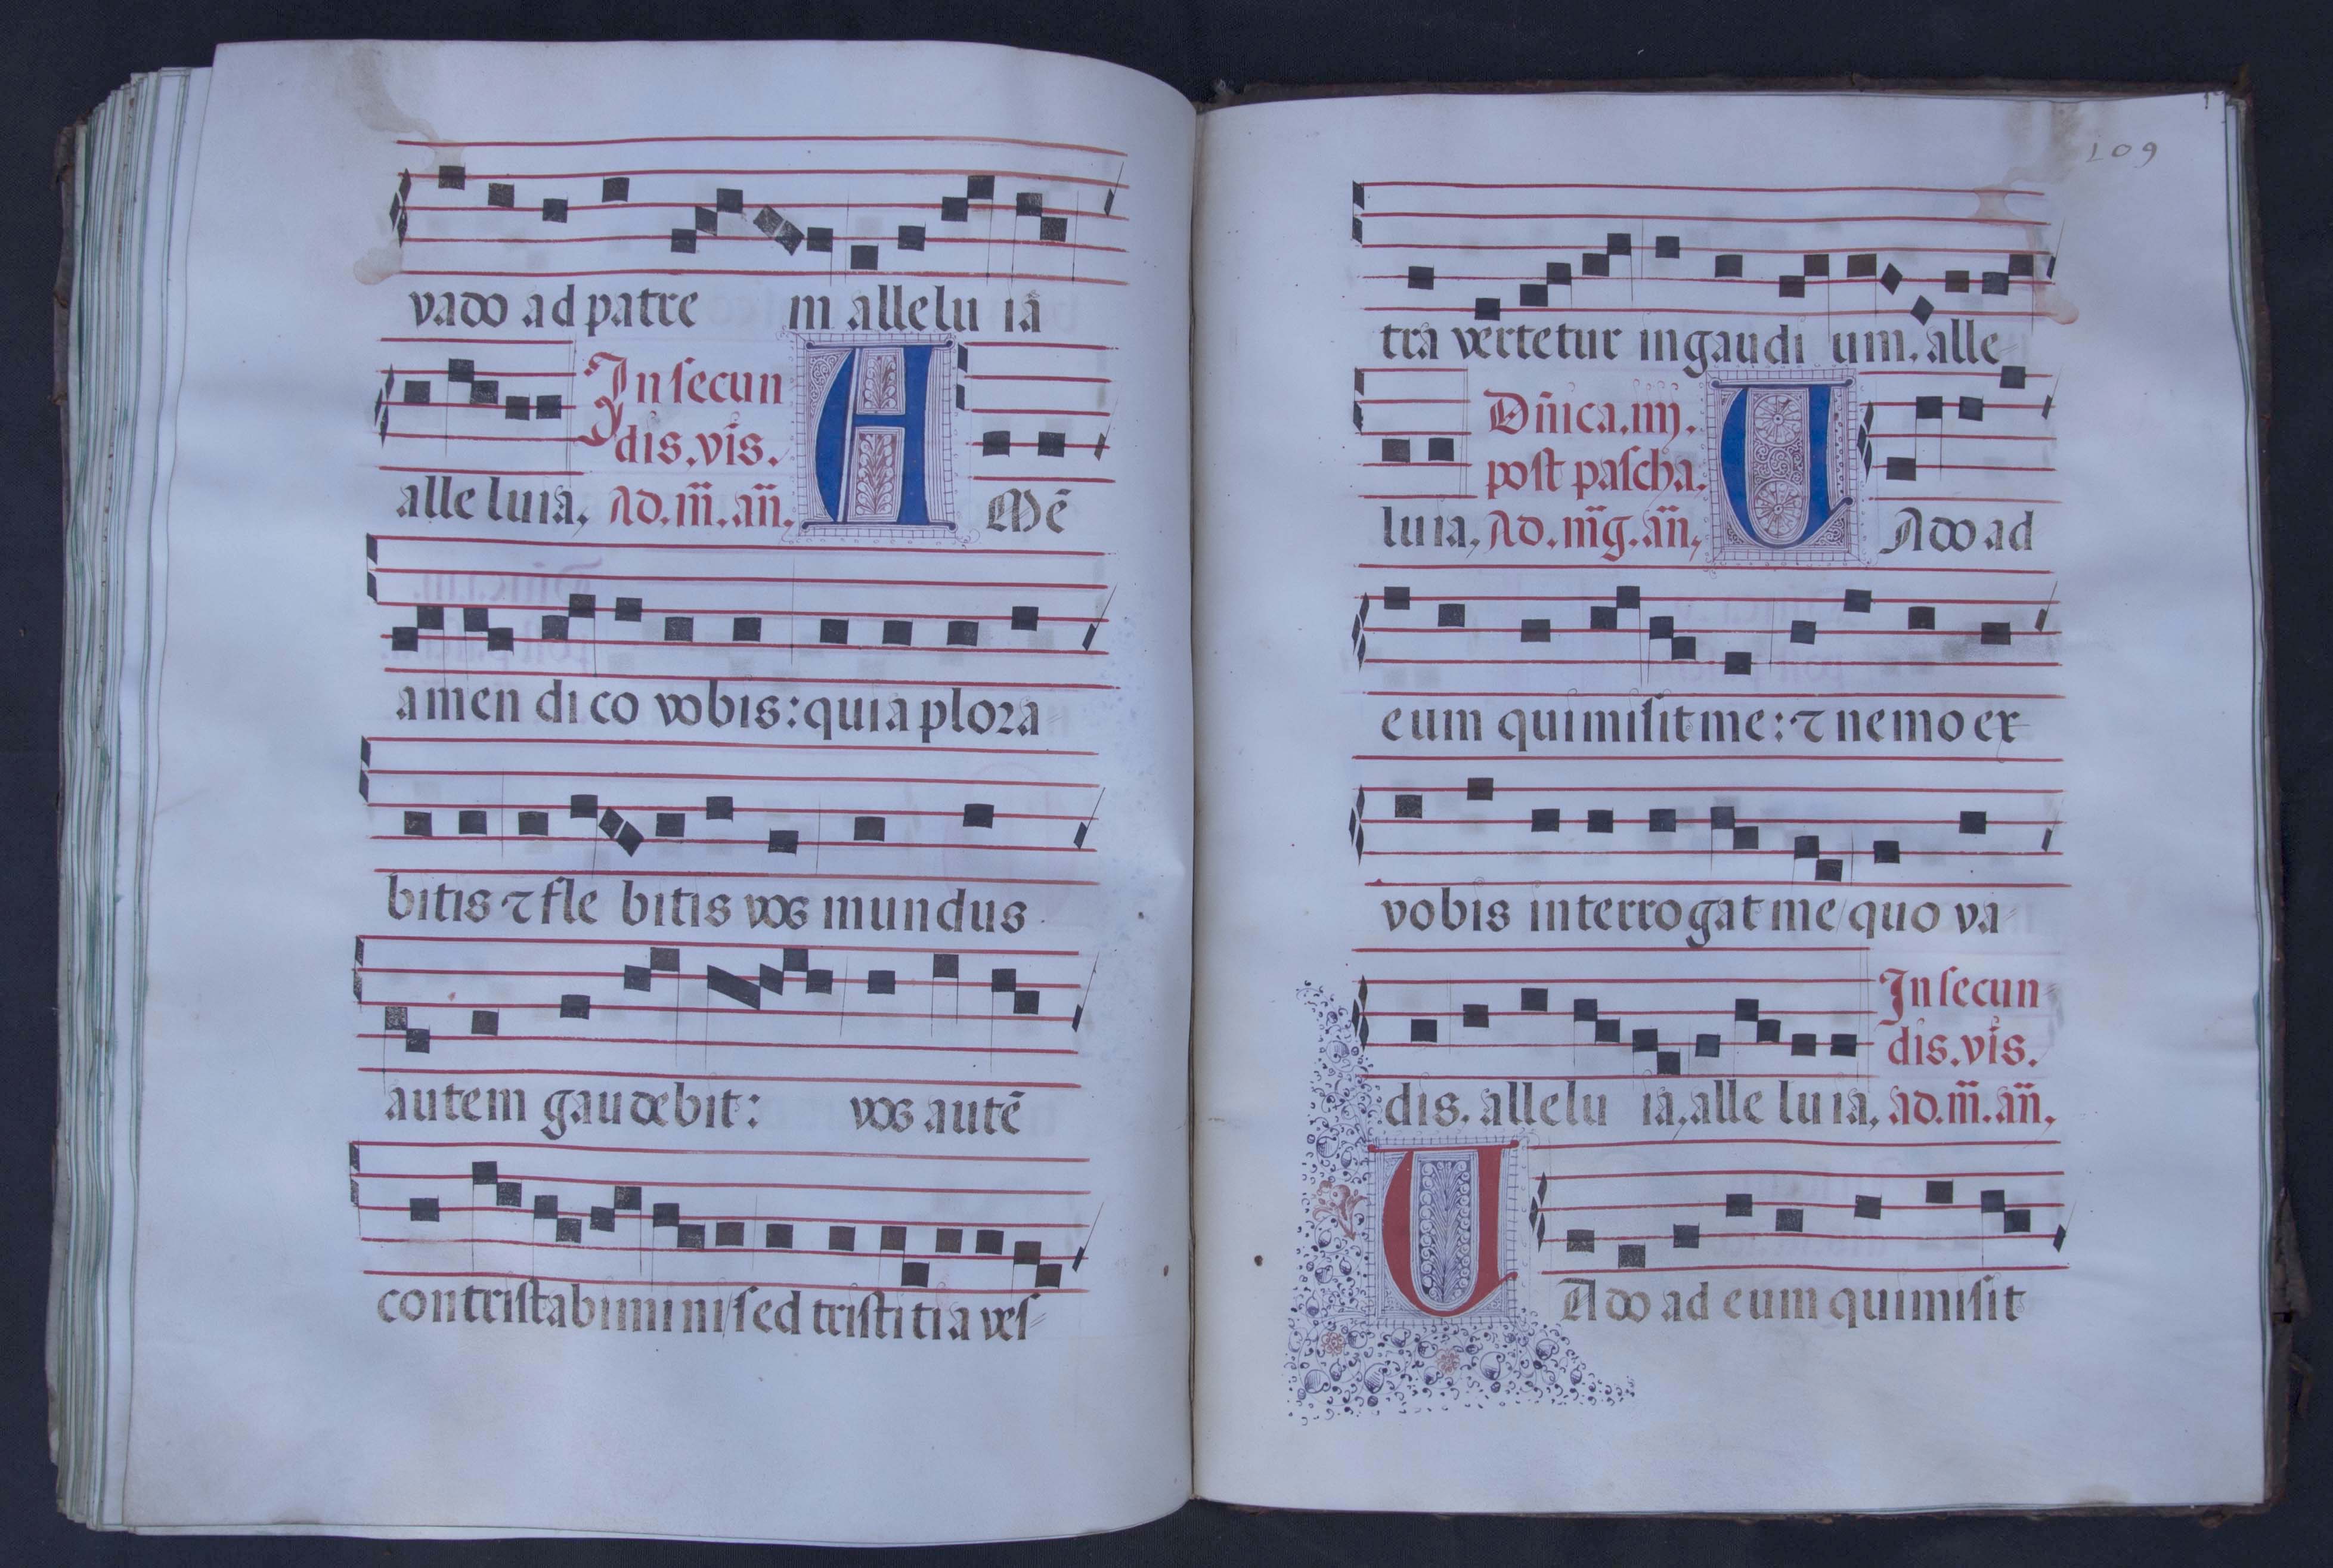 vado ad patre m allelu iā
In secun
dis. vīs.
alle luia, Ad. m̄. an̄. A Mē
amen di co vobis: quia plora
bitis ⁊ fle bitis vos mundus
autem gaudebit: vos autē
contristabimini/ sed tristitia ves
109
tra vertetur in gaudi um. alle
Dn̄ica. iiij.
post pascha.
luia, Ad. m̄g. an̄, V Ado ad
eum qui misit me: ⁊ nemo ex
vobis interrogat me/ quo va
In secun
dis. vīs.
dis. allelu ia, alle luia, ad. m̄. an̄,
V Ado ad eum qui misit